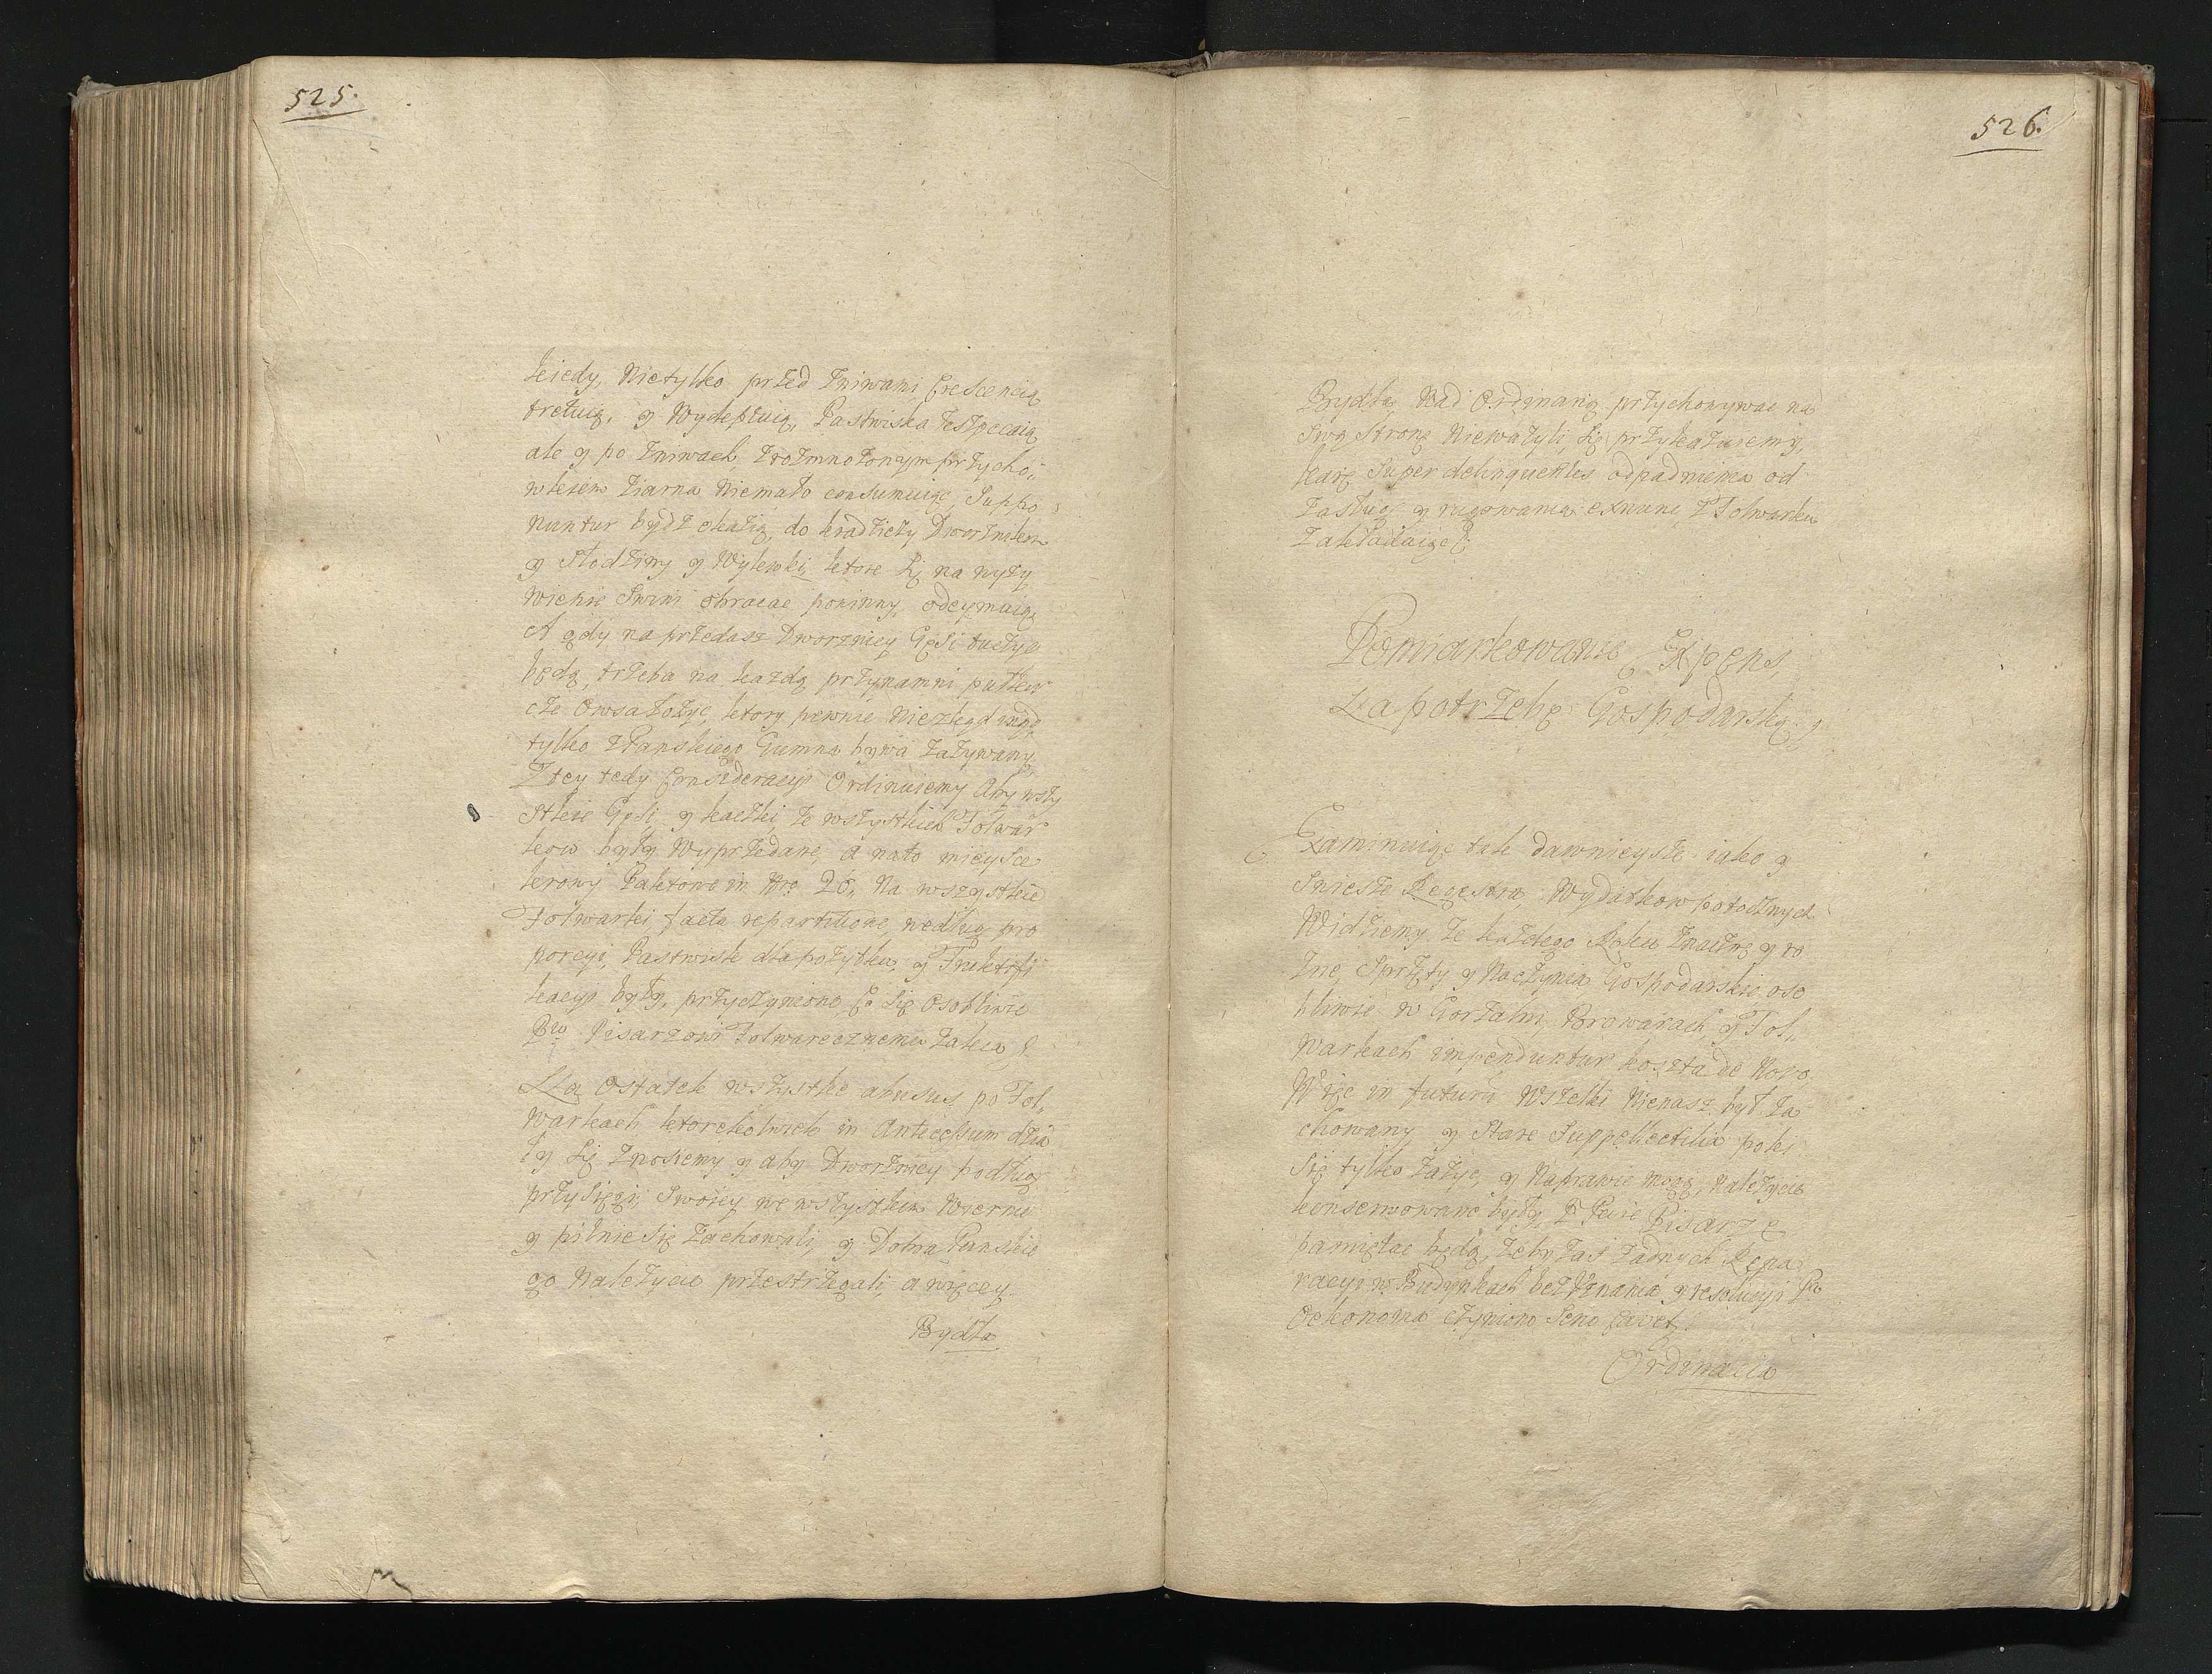 525.
kiedy, Nietylko przed Żniwami Crescencią
tretuią, y Wydeptuią, Pastwiska zeszpecaią
ale y po Żniwach, zrozmnożonym przycho„
wkiem Ziarna Niemało consumuiąc, Suppo
nuntur bydz okazią, do kradzieży Dwornikow
y Słodziny y Wylewki, ktore się na
Wieprze Swini obracac powinny, odeymuią
A gdy na przedasz Dworzniey Gęsi tuczyc
będą, trzeba na każdą przynamni
Owsa łożyc, ktory pewnie Niezkąd inąd
tylko z Panskiego Gumna bywa zażywany
Z tey tedy Consideracyi Ordinuiemy Aby wszy
stkie Gęsi, y kaczki, ze wszystkich Folwar
kow były Wyprzedane, a nato mieysce
krowy Paktowe in Nro 26, Na wszystkie
Folwarki, facta repartitione, według pro
porcyi, Pastwisk dla pożytku, y Fruktyfi
kacyi były, przyczynione, Co się osobliwie
Pisarzowi Folwarcznemu zaleca
Na Ostatek wszystkie abusus po Fol„
warkach ktorekolwiek in Antecessum dzia
ły się Znosiemy y aby Dworzniey podług
przysięgi, Swoiey we wszystkim Wiernie
y pilnie się zachowali, y Dobra Panskie
go Należycie przestrzegali, a więcey
Bydła
526.
Bydła, Nad Ordinarią przychowywac na
Swą Stronę Nieważyli, się przykazuiemy,
karę Super delinquentes odpadnienia od
zasług y rugowania ex nunc, z Folwarku
zakładaiąc
Pomiarkowanie Expens,
Na potrzebę Gospodarską
Examinuiąc tak dawnieysze iako y
Swieże Regestra Wydatkow potocznych
Widziemy, że każdego Roku Znaczne y ro
zne, Sprzęty y Naczynia Gospodarskie oso
bliwie w Gorzalni, Browarach, y Fol„
warkach impenduntur koszta de Novo
Więc in futurum Wszelki Niemasz był za
chowany, y Stare Suppellectilia poki
Się tylko zażyc, y Naprawic mogą, należycie
konserwowane były, Pisarze
pamiętac będą, żeby zas żadnych Repa
racyi w Budynkach bez Uznania y resolucyi
Oekonoma czyniono Seno cavet
Ordinacia